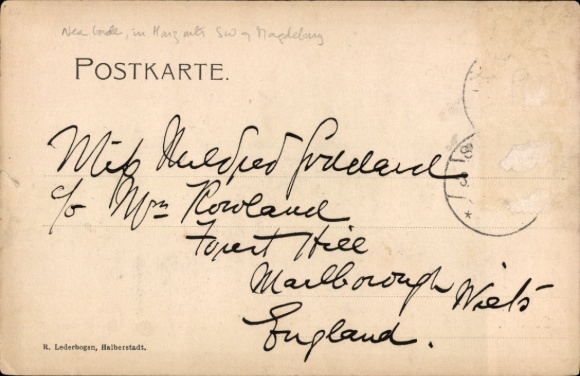 in Harz mts SW of Magdeburg
POSTKARTE.
Miss Mildred Goddard
c/o Mrs Rowland
Forest Hill
Marlborough Wilts
England.
R. Lederbogen, Halberstadt.